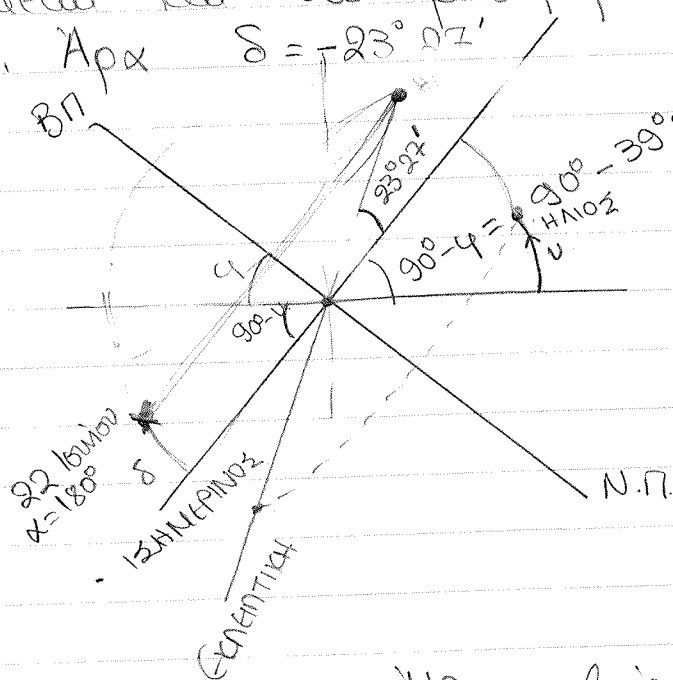 Άρα δ = -23° 27'
ΒΠ
23°27'
φ
90°-φ = 90° - 39°
ΗΛΙΟΣ
υ
90°-φ
22 Ιουνίου
α=180°
δ
ΙΣΗΜΕΡΙΝΟΣ
Ν.Π.
ΕΚΛΕΙΠΤΙΚΗ